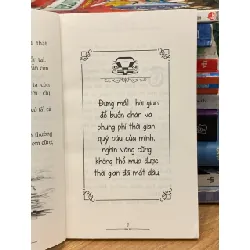 Đừng mất thời gian
để buồn chán và
phung phí thời gian
quý báu của mình,
nghìn vàng cũng
không thể mua được
thời gian đã mất đâu.
7